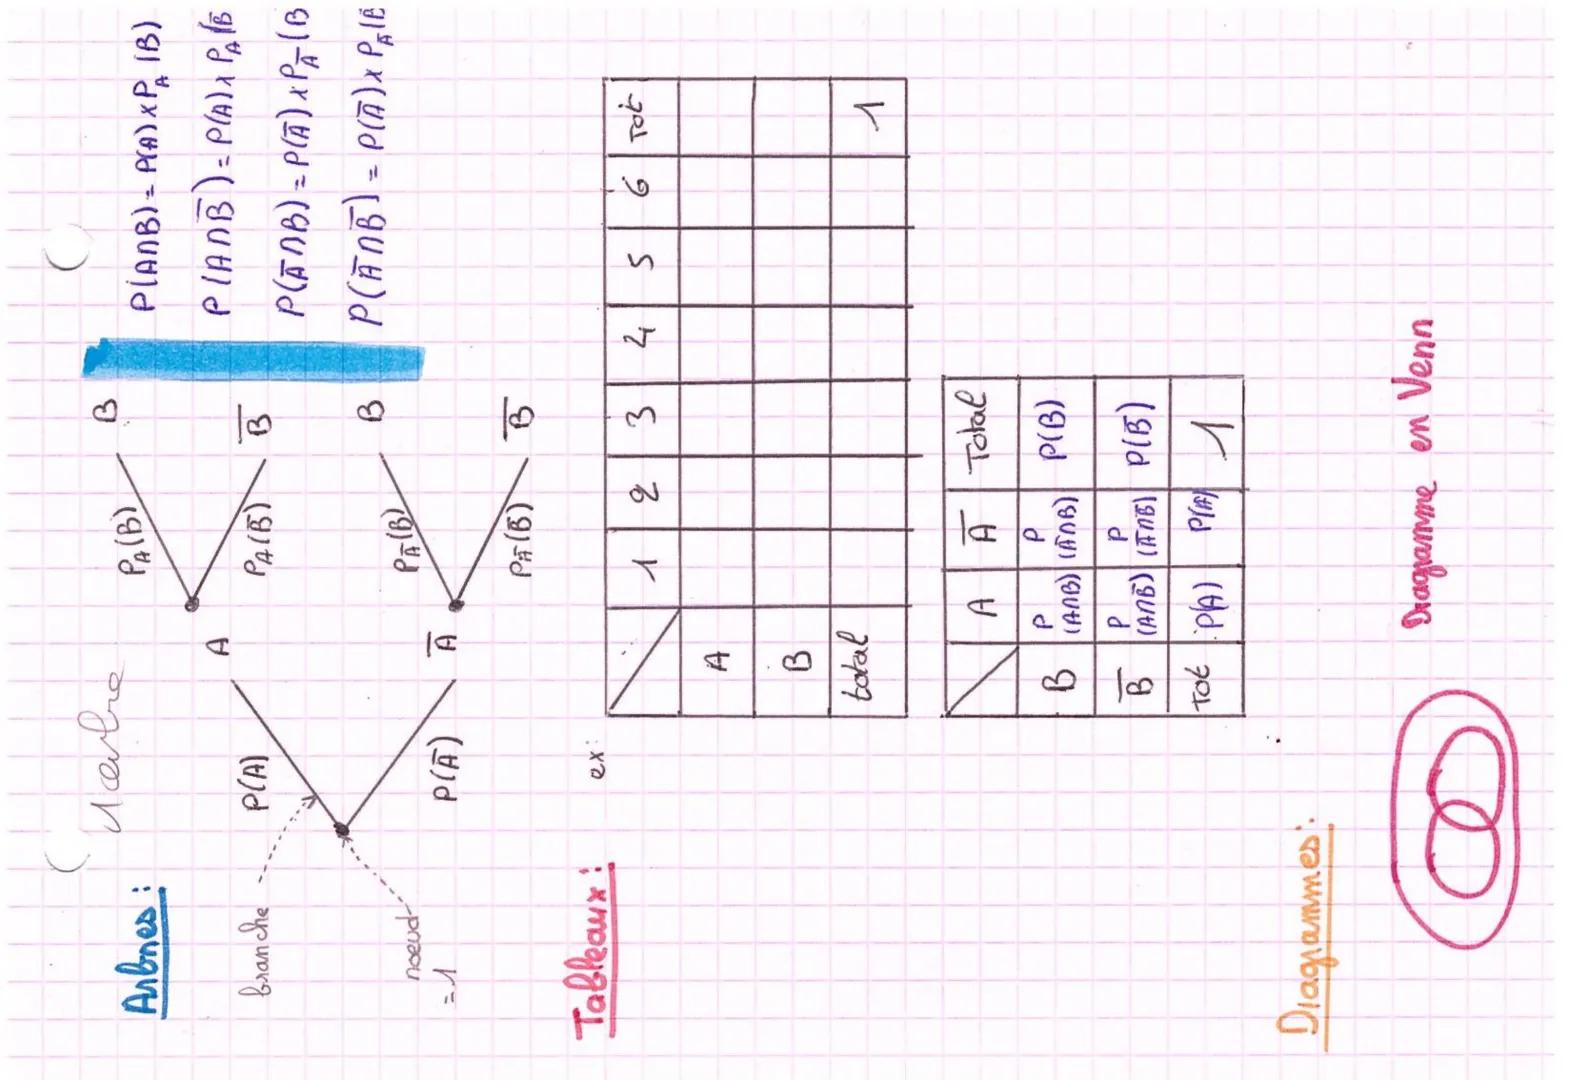 Arbres :
P(A)
P(A̅)
branche
noeud
=1
A
A̅
P_A(B)
P_A(B̅)
P_A̅(B)
P_A̅(B̅)
B
B̅
B
B̅
P(A∩B) = P(A) x P_A (B)
P(A∩B̅) = P(A) x P_A (B̅
P(A̅∩B) = P(A̅) x P_A̅ (B
P(A̅∩B̅) = P(A̅) x P_A̅ (B̅
Tableaux :
ex:
1 2 3 4 5 6 Tot
A
B
total 1
A A̅ Total
B P(A∩B) P(A̅∩B) P(B)
B̅ P(A∩B̅) P(A̅∩B̅) P(B̅)
Tot P(A) P(A̅) 1
Diagrammes :
Diagramme en Venn